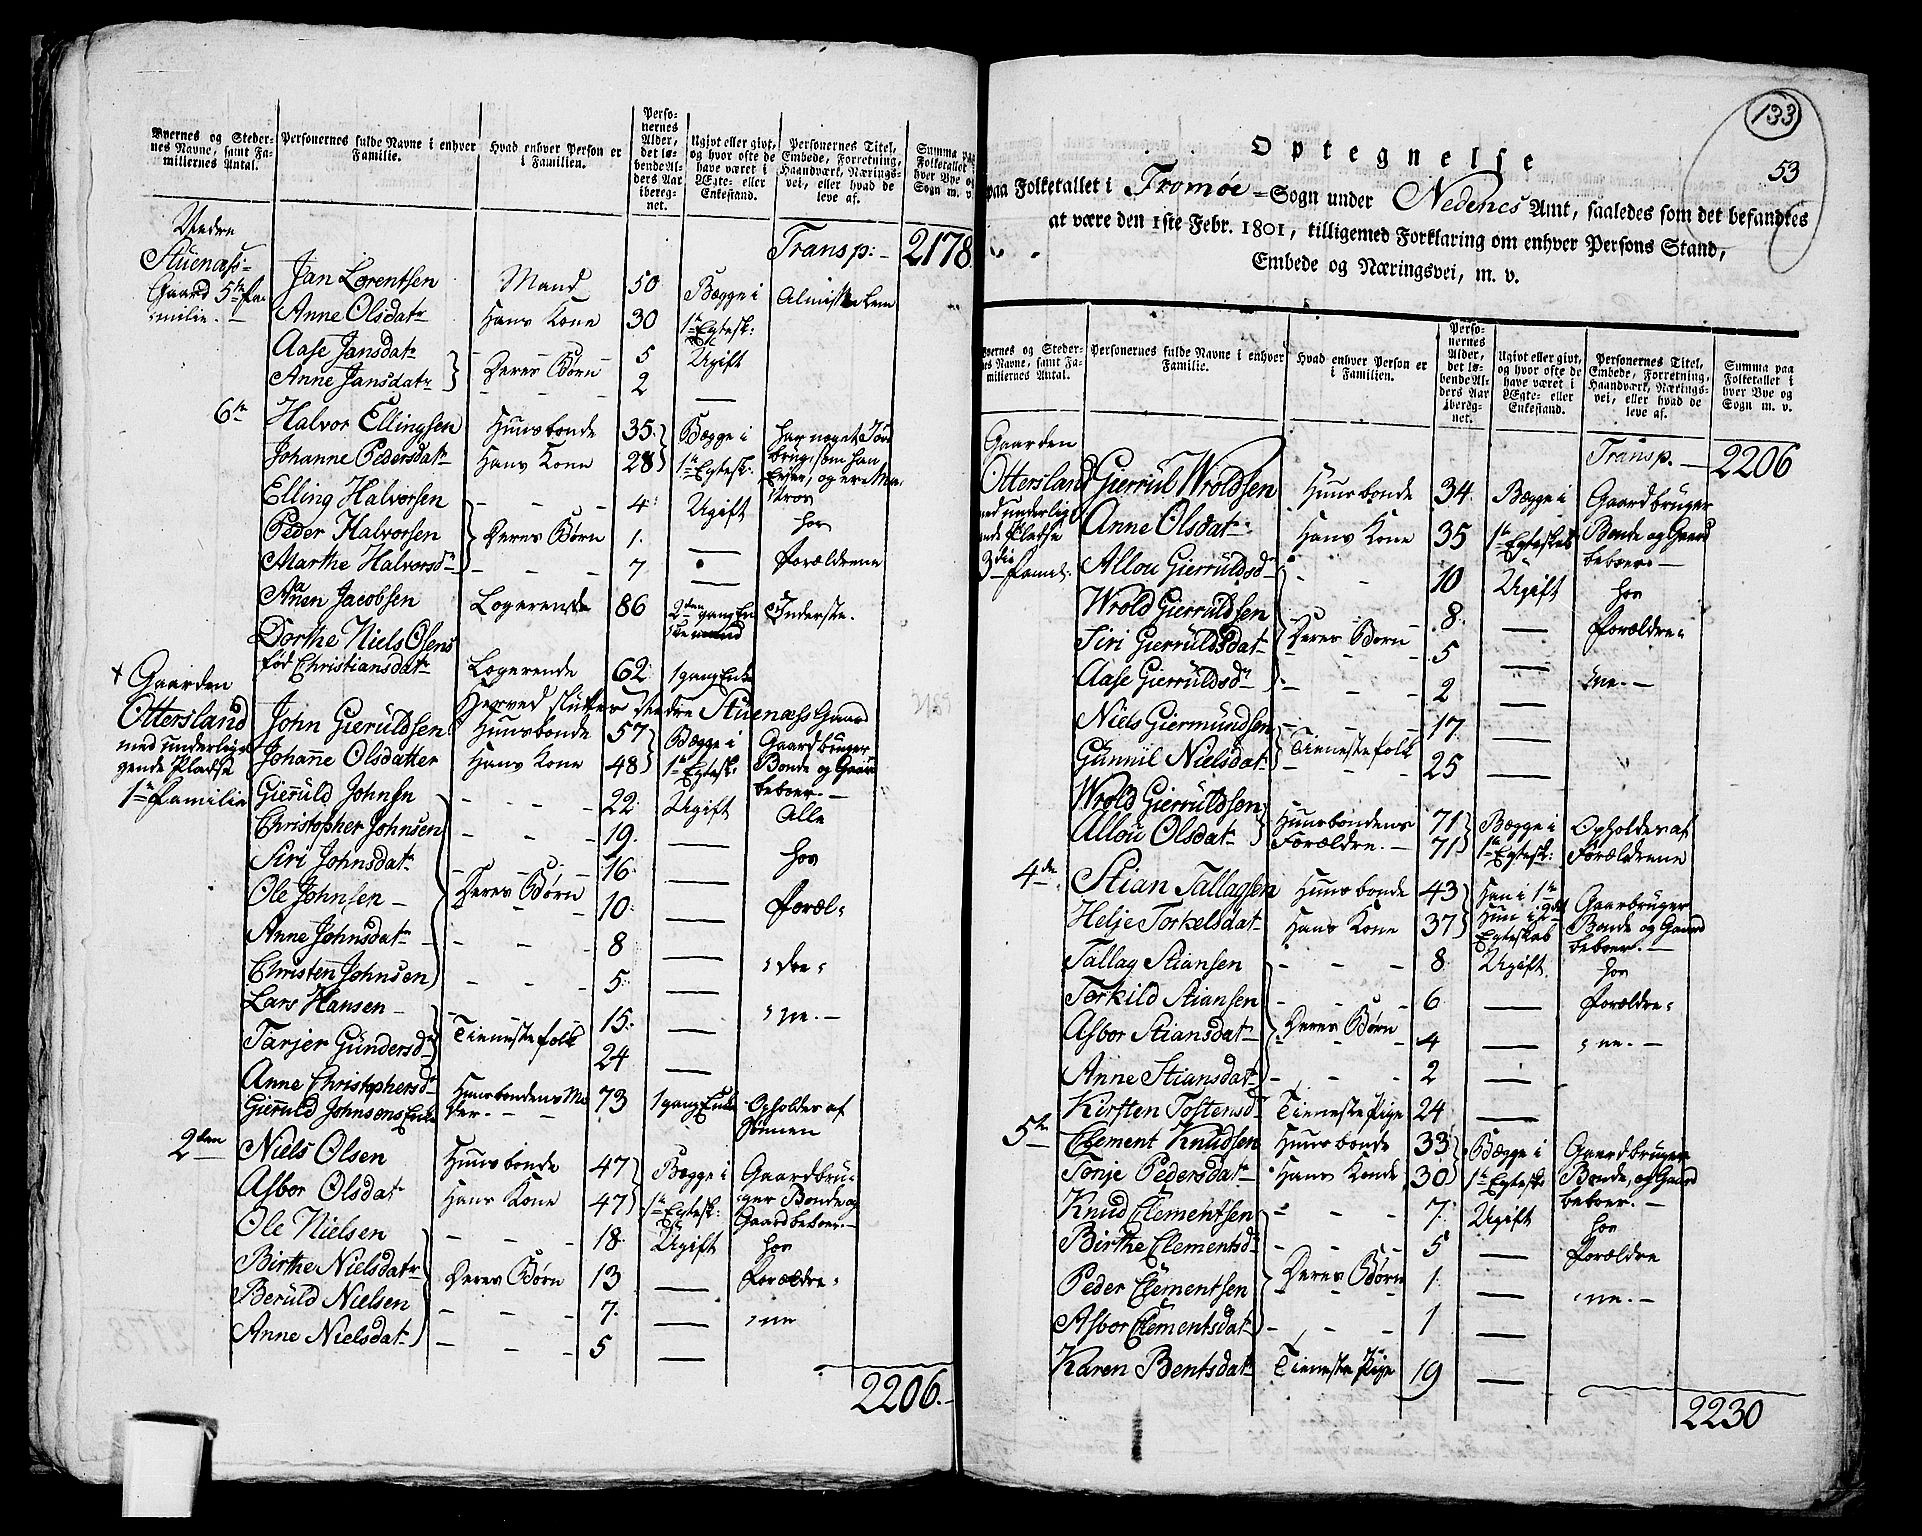 Byernes og Stedernes Navne, samt Familiernes Antal.
Personernes fulde Navne i enhver Familie.
Hvad enhver Person er i Familien.
Personernes Alder, det løbende Alders Aar iberegnet.
Ugivt eller givt, og hvor ofte de have været i Ægte- eller Enkestand.
Personernes Titel, Embede, Forretning, Haandværk, Næringsvei, eller hvad de leve af.
Summa paa Folketallet i hver Bye og Sogn m. v.
Transp: - 2178
Nedre
Stuenæss-
Gaard 5te Fa-
milie. -
Jan Lorentsen Mand 50 Bægge i Almisse Lem
Anne Olsdatr Hans Kone 30 1te Egtesk:
Aase Jansdatr 5 Ugift
Deres Børn
Anne Jansdatr 2 —
6te Halvor Ellingsen Huusbonde 35 Bægge i har noget Jord
Johanne Pedersdatr Hans Kone 28 1te Egtesk: brug, som han
Elling Halvorsen - - - 4 Ugift hos
Peder Halvorsen Deres Børn 1 —
Marthe Halvorsdr - - - 7 — Forældrene
Anen Jacobsen Logerende 86 2den gang En- Inderste.
Dorthe Niels Olsens
fød Christiansdatr Logerende 62 1 gang Enke
Herved slutter Nedre Stuenæss Gaard
+ Gaarden
Ottersland
med underlig-
gende Pladse
1te Familie
John Gieruldsen Huusbonde 57 Bægge i Gaardbruger
Johanne Olsdatter Hans Kone 48 1te Egtesk: Bonde og Gaard
beboer. -
Gieruld Johnsen - - - 22 Ugift Alle
Christopher Johnsen - - - 19 —
Siri Johnsdatr - - - 16 — hos
Ole Johnsen - Deres Børn 10 — Foræl-
Anne Johnsdatr - - - 8 —
Christen Johnsen - - - 5 — dre-
Lars Hansen - 15 — ne. -
Tienestefolk
Tarjer Gundersdr 24 —
Anne Christophersdr Huusbondens Mo- 73 1 gang Enke Opholdes af
Gieruld Johnsens Enke der. - - Sønnen
2den Niels Olsen Huusbonde 47 Bægge i Gaardbru-
Asbor Olsdatr Hans Kone 47 1te Egtesk: ger Bonde og
Gaardbeboer. -
Ole Nielsen - - - 18 Ugift hos
Birthe Nielsdatr Deres Børn 13 — Forældre-
Beruld Nielsen - - - 7 — ne
Anne Nielsdatr - - - 5 —
2206. -
133
53
Optegnelse
paa Folketallet i Tromøe-Sogn under Nedenes Amt, saaledes som det befandtes
at være den 1ste Febr. 1801, tilligemed Forklaring om enhver Persons Stand,
Embede og Næringsvei, m. v.
Byernes og Stedernes Navne, samt Familiernes Antal.
Personernes fulde Navne i enhver Familie.
Hvad enhver Person er i Familien.
Personernes Alder, det løbende Alders Aar iberegnet.
Ugivt eller givt, og hvor ofte de have været i Ægte- eller Enkestand.
Personernes Titel, Embede, Forretning, Haandværk, Næringsvei, eller hvad de leve af.
Summa paa Folketallet i hver Bye og Sogn m. v.
Transp. — 2206
Gaarden
Ottersland
med underlig-
gende Pladse
3die Famil:
Gierrul Wroldsen Huusbonde 34 Bægge i Gaardbruger
Anne Olsdatr Hans Kone 35 1te Egteskab Bonde og Gaard
beboer. —
Allou Gierruldsdr - - - 10 Ugift hos
Wrold Gierruldsen 8 — Forældre-
Deres Børn
Siri Gierruldsdatr 5 —
Aase Gierruldsdr - - - 2 — ne. —
Niels Giermundsen 17 —
Tienestefolk
Gunnil Nielsdatr 25 —
Wrold Gierruldsen Huusbondens 71 Bægge i Opholdes af
Allou Olsdatr Forældre. - 71 1te Egtesk: Forældrene
4de Stian Tallagsen Huusbonde 43 Han i 1te Gaarbruger
Helje Torkelsdatr Hans Kone 37 Hun i Bonde og Gaard
Egteskab beboer. —
Tallag Stiansen - - - 8 Ugift hos
Torkild Stiansen - - - 6 — Forældre-
Asbor Stiansdatr Deres Børn 4 — ne. -
Anne Stiansdatr - - - 2 —
Kirsten Tostensdr Tieneste Pige 24 —
5te Clement Knudsen Huusbonde 33 Bægge i Gaardbruger
Tonje Pedersdatr Hans Konde 30 1te Egtesk: Bonde, og Gaard
beboer. —
Knud Clementsen - - - 7 Ugift hos
Birthe Clementsdr - - - 5 — Forældre
Peder Clementsen Deres Børn 1 — ne. —
Asbor Clementsdatr - - - 1 —
Karen Bentsdatr Tieneste Pige 19 —
2230